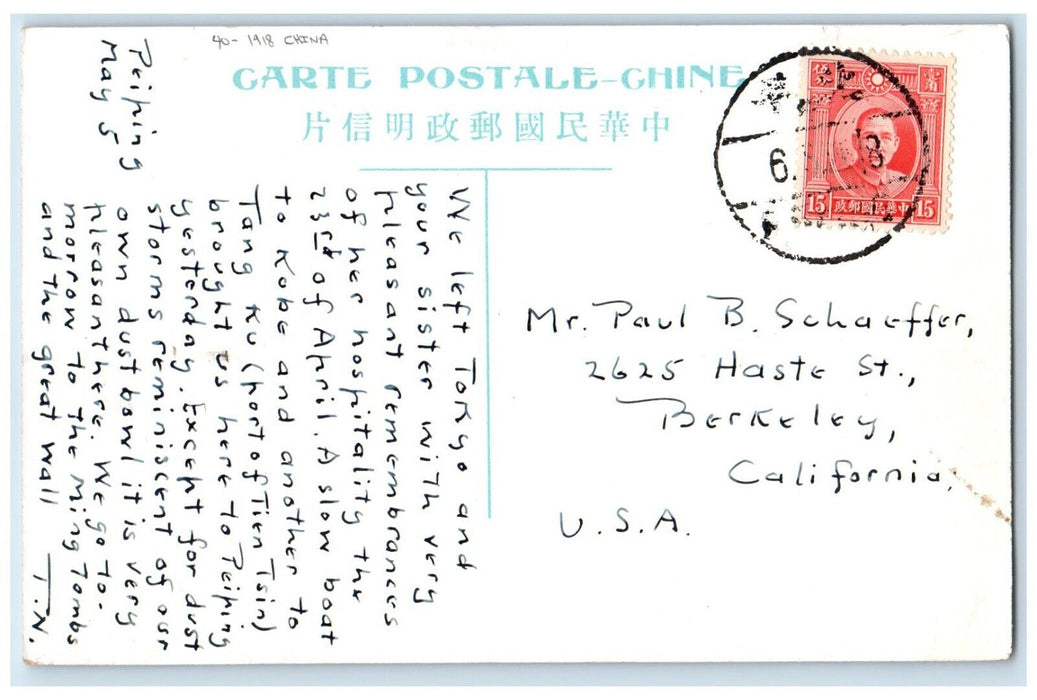 40- 1918 CHINA
CARTE POSTALE-CHINE
片信明政郵國民華中
15 政郵國民華中 15
6. 8
Peiping
May 5
We left Tokyo and
your sister with very
pleasant remembrances
of her hospitality the
23rd of April. A slow boat
to Kobe and another to
Tang Ku (port of Tien Tsin)
brought us here to Peiping
yesterday. Except for dust
storms reminiscent of our
own dust bowl it is very
pleasant here. We go to-
morrow to the Ming Tombs
and the great wall
T.N.
Mr. Paul B. Schaeffer,
2625 Haste St.,
Berkeley,
California,
U.S.A.